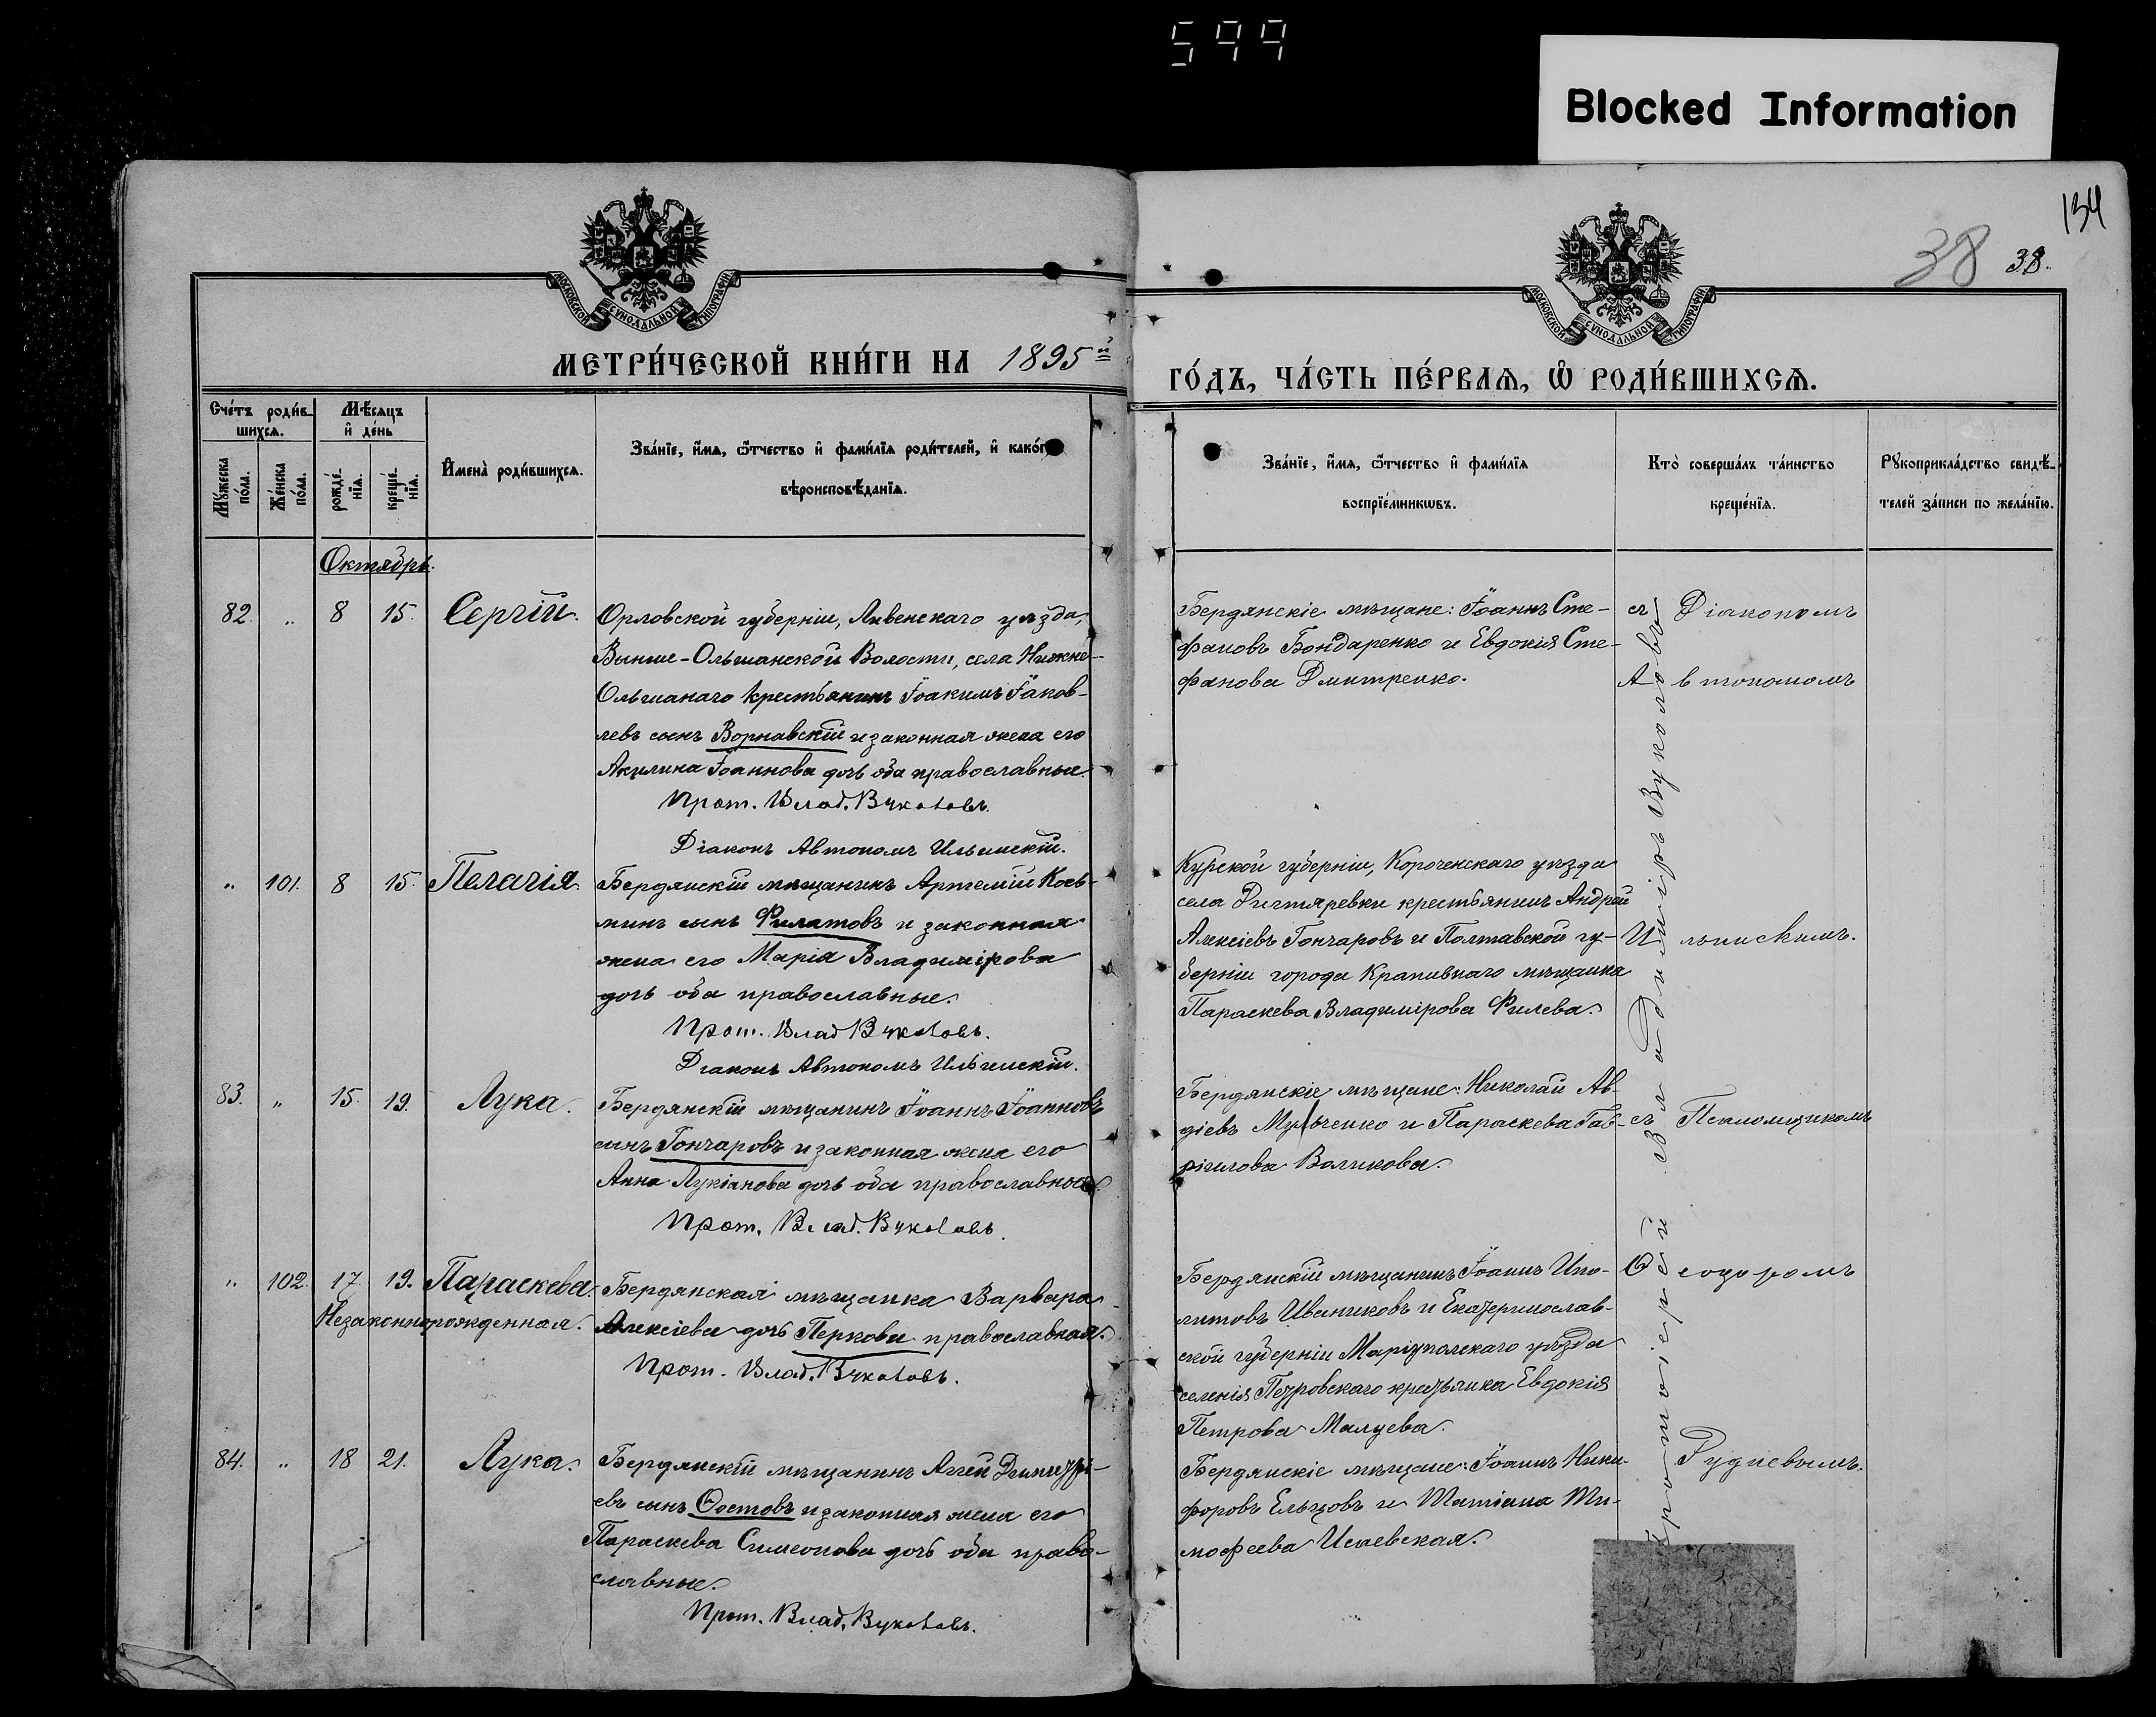 599
Blocked Information
134
38 38.
МОСКОВСКОЙ СУНОДАЛЬНОЙ ТИПОГРАФИИ
МОСКОВСКОЙ СУНОДАЛЬНОЙ ТИПОГРАФИИ
МЕТРИ́ЧЕСКОЙ КНИ́ГИ НА 1895й
ГО́ДЪ, ЧА́СТЬ ПЕ́РВАѦ, Ѡ҃ РОДИ́ВШИХСѦ.
Сче́тъ роди́в-
шихсѧ.
Мѣ́сѧцъ
и҆ де́нь
Мꙋ́жеска
по́ла.
Же́нска
по́ла.
рожде́-
нїѧ.
креще́-
нїѧ.
И҆мена̀ роди́вшихсѧ.
Зва́нїе, и҆́мѧ, ѻ҆́тчество и҆ фами́лїѧ роди́телей, и҆ како́г
вѣроисповѣ́данїѧ.
Зва́нїе, и҆́мѧ, ѻ҆́тчество и҆ фами́лїѧ
воспрїе́мникѡвъ.
Кто̀ соверша́лъ та́инство
креще́нїѧ.
Рꙋкоприкла́дство свидѣ́-
телей за́писи по жела́нїю.
Октябрь.
82. „ 8 15. Сергій.
Орловской губерніи, Ливенскаго уѣзда,
Вышне-Ольшанской Волости, села Нижне-
Ольшанаго крестьянинъ Іоакимъ Іаков-
левъ сынъ Ворнавскій и законная жена его
Акилина Іоаннова дочь оба православные.
Прот. Влад. Вуколовъ.
Діаконъ Автономъ Ильинскій.
Бердянскіе мѣщане: Іоаннъ Сте-
фановъ Бондаренко и Евдокія Сте-
фанова Дмитренко.
„ 101. 8 15. Пелагія.
Бердянскій мѣщанинъ Артемій Кось-
минъ сынъ Филатовъ и законная
жена его Марія Владимірова
дочь оба православные.
Прот. Влад Вуколовъ.
Діаконъ Автономъ Ильинскій.
Курской губерніи, Короченскаго уѣзда
села Дигтяревки крестьянинъ Андрей
Алексіевъ Гончаровъ и Полтавской гу-
берніи города мѣщанка
Параскева Владимірова Филева.
83. „ 15. 19. Лука.
Бердянскій мѣщанинъ Іоаннъ Іоанновъ
сынъ Гончаровъ и законная жена его
Анна Лукіанова дочь оба православные.
Прот. Влад. Вуколовъ.
Бердянскіе мѣщане: Николай Ав-
діевъ Мульченко и Параскева Гав-
ріилова Воликова.
„ 102. 17 19. Параскева.
Незаконнорожденная.
Бердянская мѣщанка Варвара
Алексіева дочь Перкова православная.
Прот. Влад. Вуколовъ.
Бердянскій мѣщанинъ Іоаннъ Ипо-
литовъ Иваниковъ и Екатеринослав-
ской губерніи Маріупольскаго уѣзда
селенія Петровскаго крестьянка Евдокія
Петрова Малцева.
84. „ 18 21. Лука.
Бердянскій мѣщанинъ Аггей Димитрі-
евъ сынъ Ѳостовъ и законная жена его
Параскева Симеонова дочь оба право-
славные.
Прот. Влад. Вуколовъ.
Бердянскіе мѣщане: Іоаннъ Ники-
форовъ Ельцовъ и Татіана Ти-
мофеева Исаевская.
Протоіерей Владиміръ Вуколовъ
съ Діакономъ
Автономомъ
Ильинскимъ.
съ Псаломщикомъ
Ѳеодоромъ
Рудневымъ.